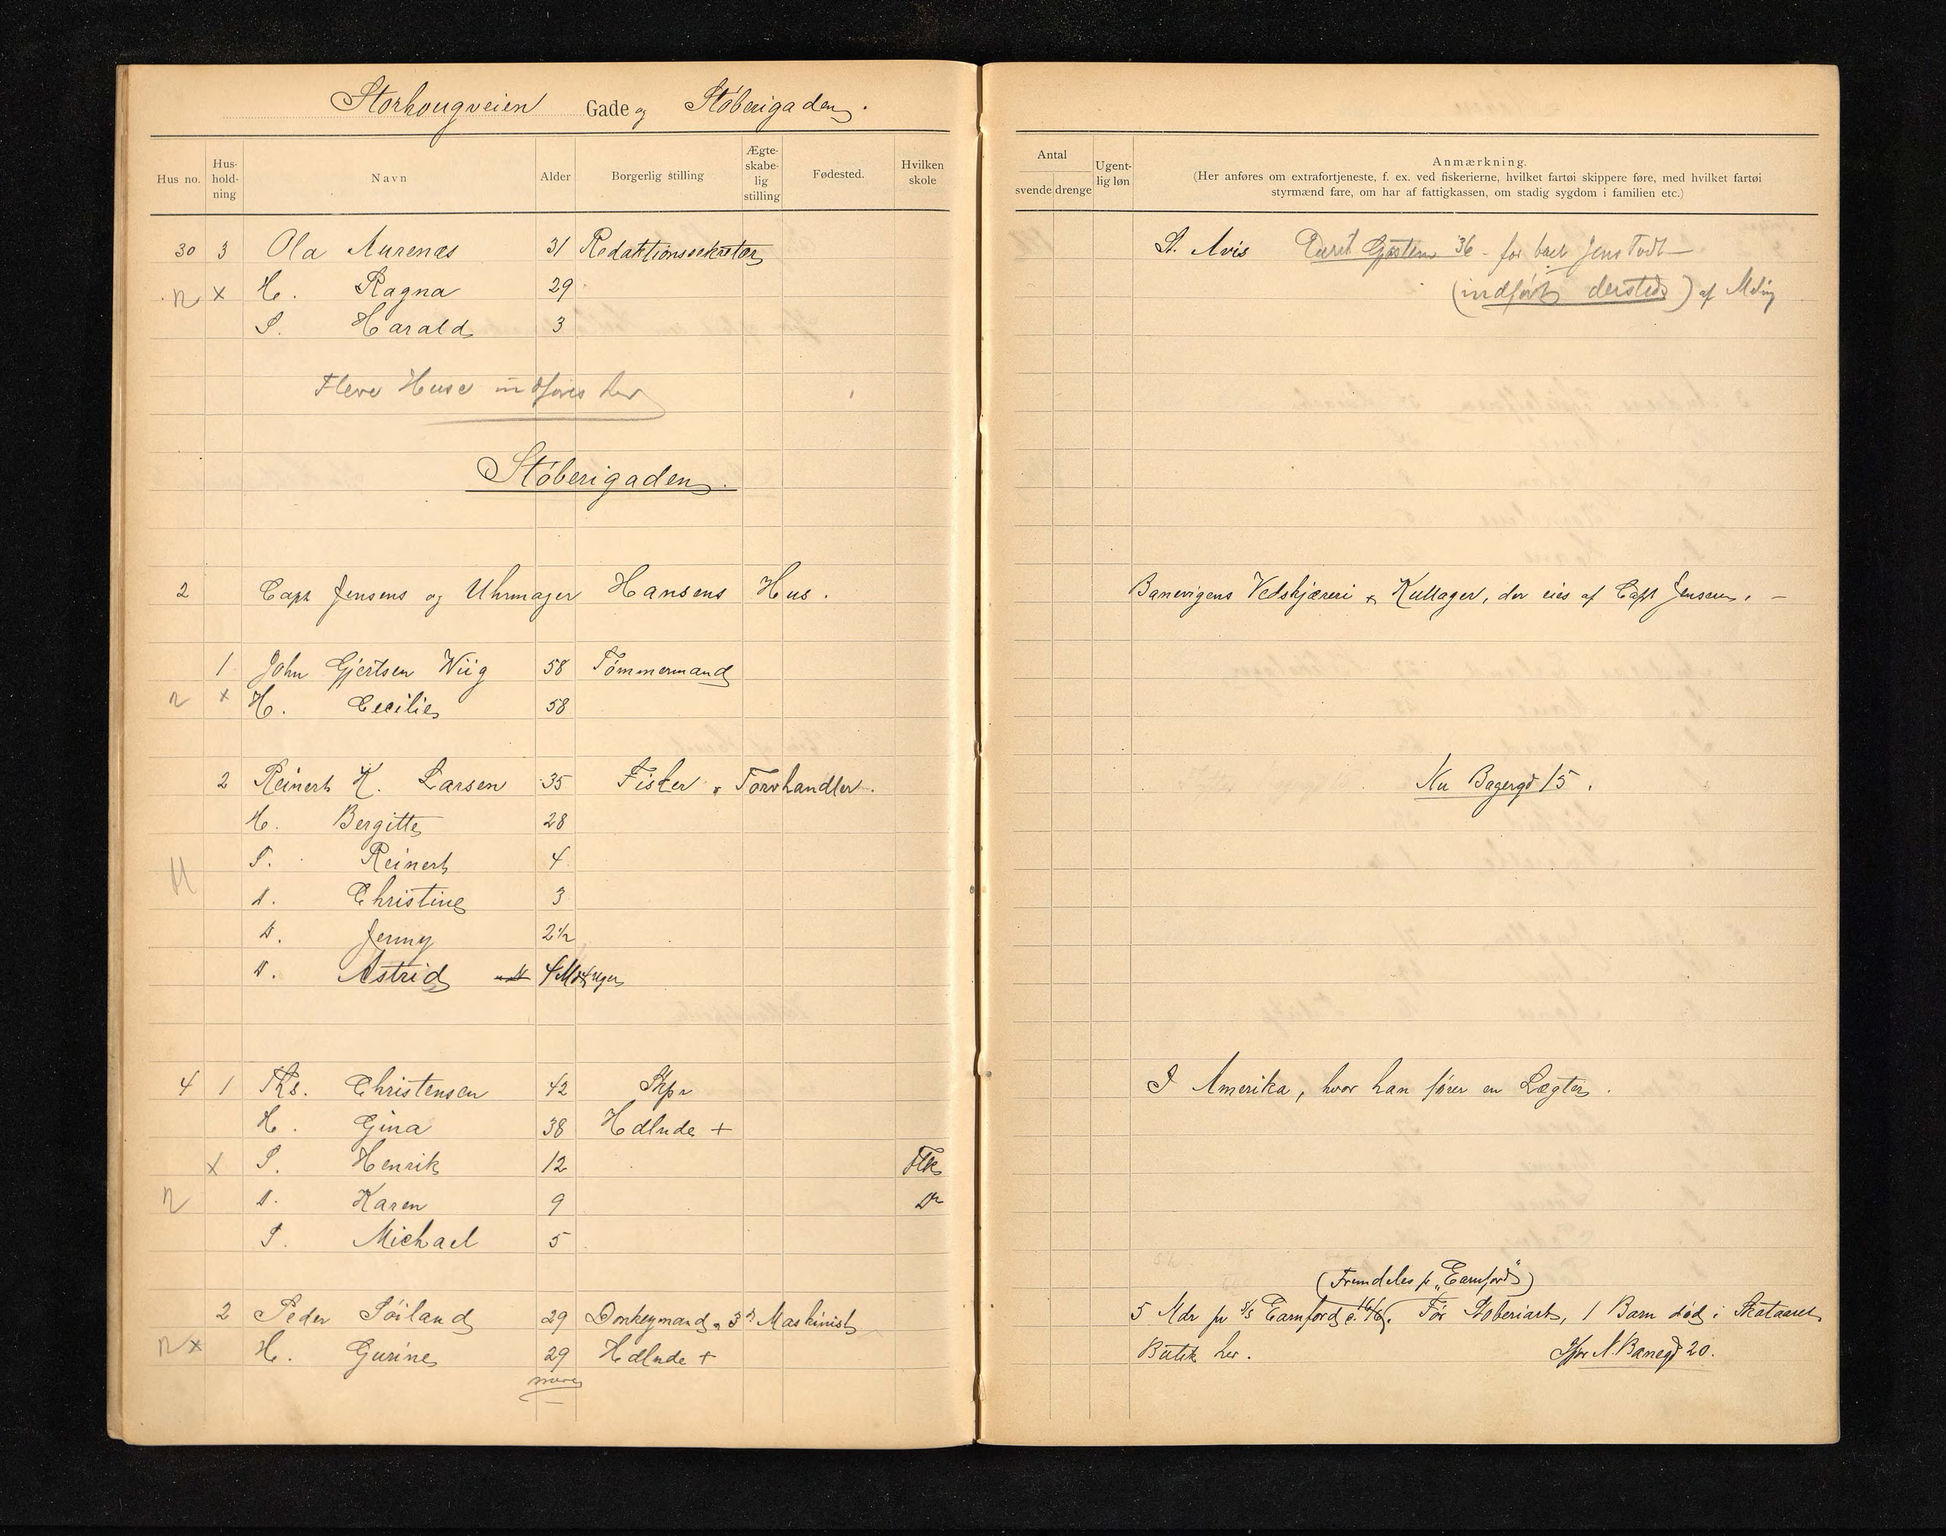 Storhougveien Gade og Støberigaden.
Hus no. Hus-hold-ning Navn Alder Borgerlig stilling Ægte-skabe-lig stilling Fødested. Hvilken skole
30 3 Ola Aurenæs 31 Redaktionssekretær
n x H. Ragna 29
S. Harald 3
Flere Huse indføres her
Støberigaden.
2 Capt Jensens og Uhrmager Hansens Hus.
1 John Gjertsen Wiig 58 Tømmermand
n x H. Cecilie 58
2 Reinert K. Larsen 35 Fisker & Torvhandler.
H. Bergitte 28
S. Reinert 4
D. Christine 3
D. Jenny 2½
D. Astrid 4
4 1 Ths. Christensen 42 Skpr
H. Gina 38 Hdlnde +
x S. Henrik 12 Flk
n D. Karen 9 Do
S. Michael 5
2 Peder Söiland 29 Donkeymand & 3d Maskinist
n x H. Gurine 29 Hdlnde +
Antal svende drenge Ugent-lig løn Anmærkning.
(Her anføres om extrafortjeneste, f. ex. ved fiskerierne, hvilket fartøi skippere føre, med hvilket fartøi
styrmænd fare, om har af fattigkassen, om stadig sygdom i familien etc.)
St. Avis 36 - for Jens Todt -
(indført dersteds) af Meling
Banevigens Vedskjæreri & Kullager, der eies af Capt Jensen. -
Nu Bagergd 15.
I Amerika, hvor han fører en Lægter.
(Fremdeles pr "Earnford")
5 Mdr pr s/s Earnford c. 16/6. Før Støberiarb, 1 Barn død i Skataaret
Butik her. Ifjor N. Banegd 20.